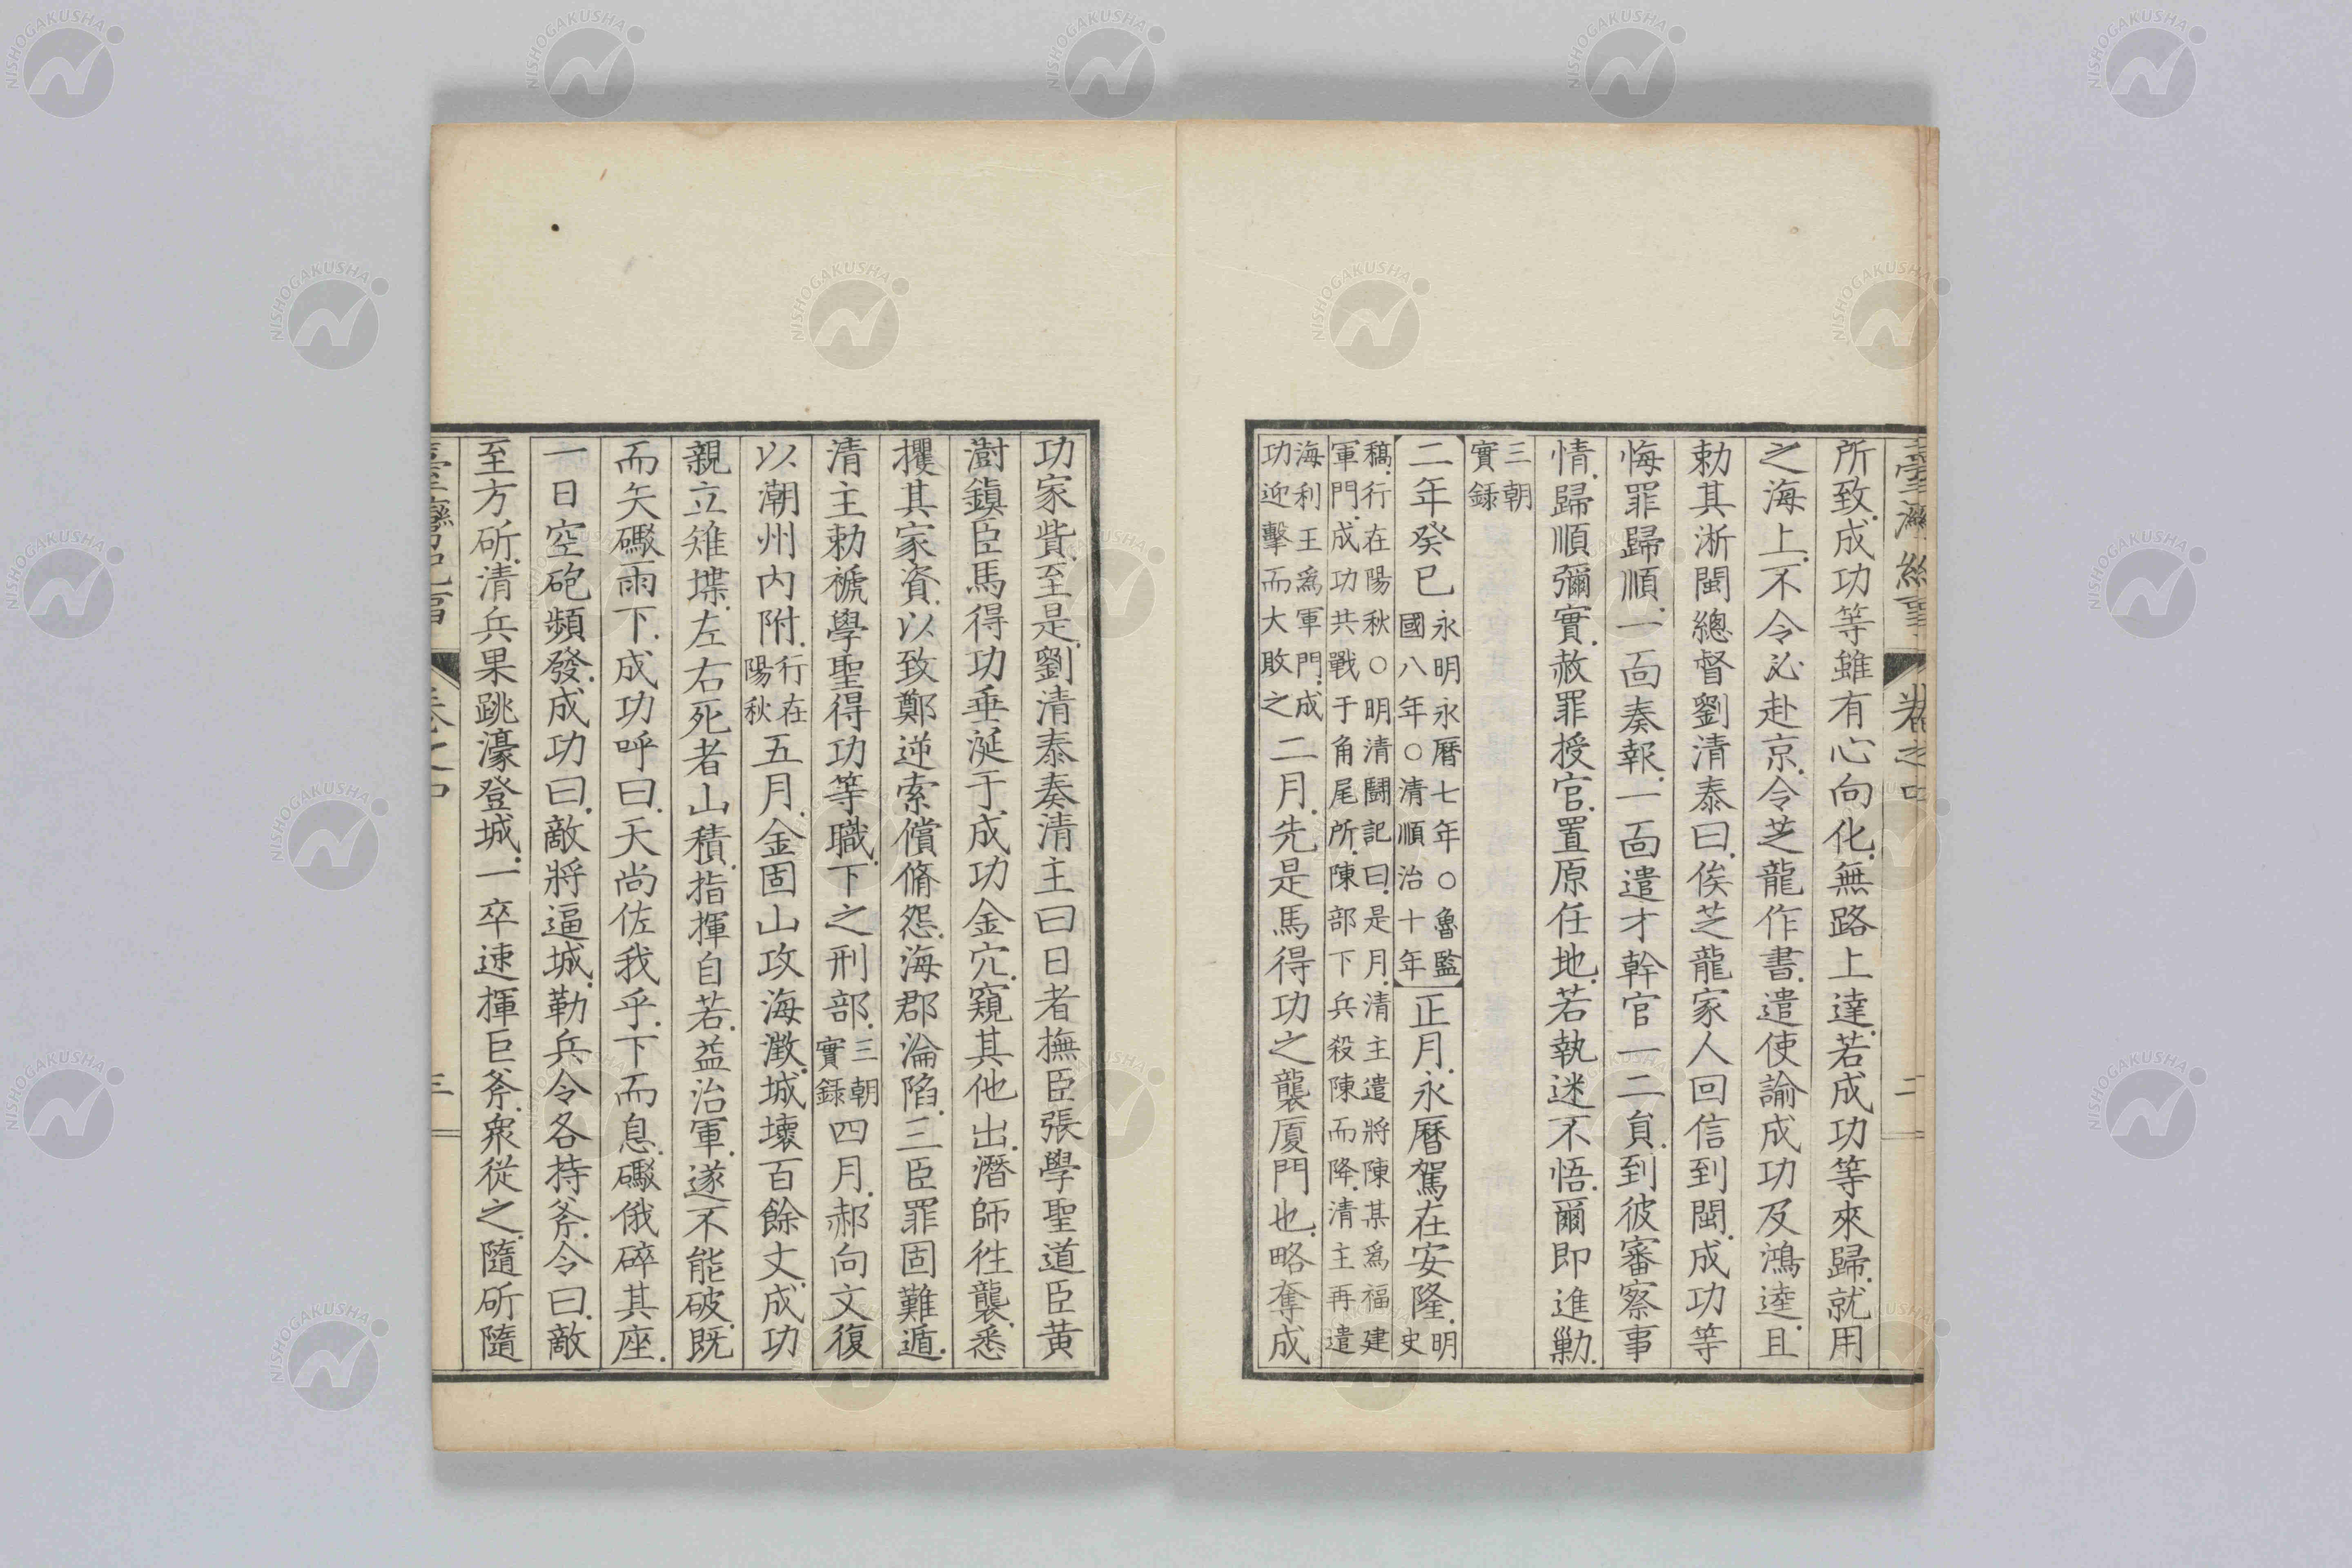 所致.成功等雖有心向化.無路上達.若成功等來歸.就用
之海上.不令必赴京.令芝龍作書.遣使諭成功及鴻逵.且
勅其淅閩總督劉清泰曰.俟芝龍家人回信到閩.成功等
悔罪歸順.一面奏報.一面遣才幹官一二員.到彼審察事
情.歸順彌實.赦罪授官.置原任地.若執迷不悟.爾即進勦.
三朝
實録
二年癸巳
永明永曆七年○魯監
國八年○清順治十年
正月.永曆駕在安隆.
明
史
稿.行在陽秋○明清鬪記曰.是月.清主遣將陳某爲福建
軍門.成功共戰于角尾所.陳部下兵殺陳而降.清主再遣
海利王爲軍門.成
功迎擊而大敗之
二月.先是馬得功之襲厦門也.略奪成
功家貲.至是.劉清泰奏清主曰日者撫臣張學聖道臣黄
澍鎭臣馬得功垂涎于成功金穴.窺其他出.潛師徃襲.悉
攫其家資.以致鄭逆索償脩怨.海郡淪陷.三臣罪固難遁.
清主勅褫學聖得功等職.下之刑部.
三朝
實録
四月.郝向文復
以潮州内附.
行在
陽秋
五月.金固山攻海澂.城壊百餘丈.成功
親立雉堞.左右死者山積.指揮自若.益治軍.遂不能破.既
而矢礮雨下.成功呼曰.天尚佐我乎.下而息.礮俄碎其座.
一日空砲頻發.成功曰.敵將逼城.勒兵令各持斧.令曰.敵
至方斫.清兵果跳濠登城.一卒速揮巨斧.衆從之.隨斫隨
NISHOGAKUSHA